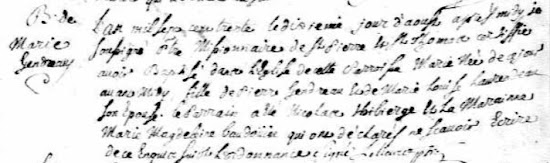 B. de
Marie
Gendreau
Lan mil sept cent trente le dixieme jour d'aoust apres midy je
soussigné ptre Missionnaire de St Pierre et St Thomas certiffie
avoir Baptisé dans l'Eglise de cette Paroisse Marie Née de ce jour
avant Midy fille de Pierre Gendreau et de Marie Louise
son Epouse. le Parrain a été Nicolas et la Maraine
Marie Magdeleine Baudoüin qui ont declarés ne Scavoir Ecrire
de ce Enquis Suivt L'ordonnance Signé